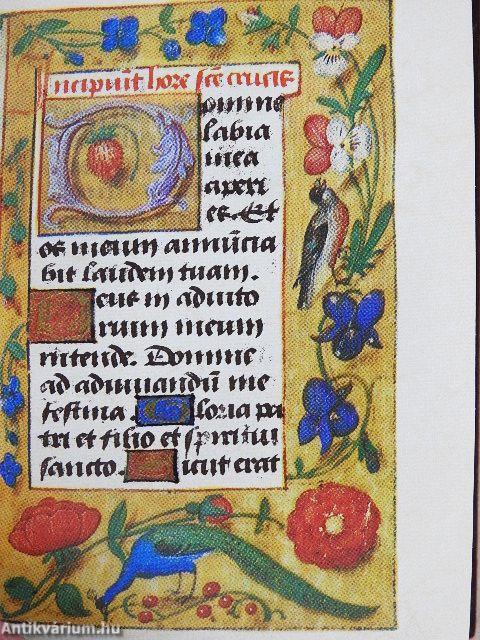 Incipiūt hore scē crucis
Domine
labia
mea
aperi
es. Et
os meum annūcia
bit laudem tuam.
Deus in adiuto
rium meum
intende. Domine
ad adiuuandū me
festina. Gloria pa
tri et filio et spiritui
sancto. Sicut erat
Antikvárium.hu